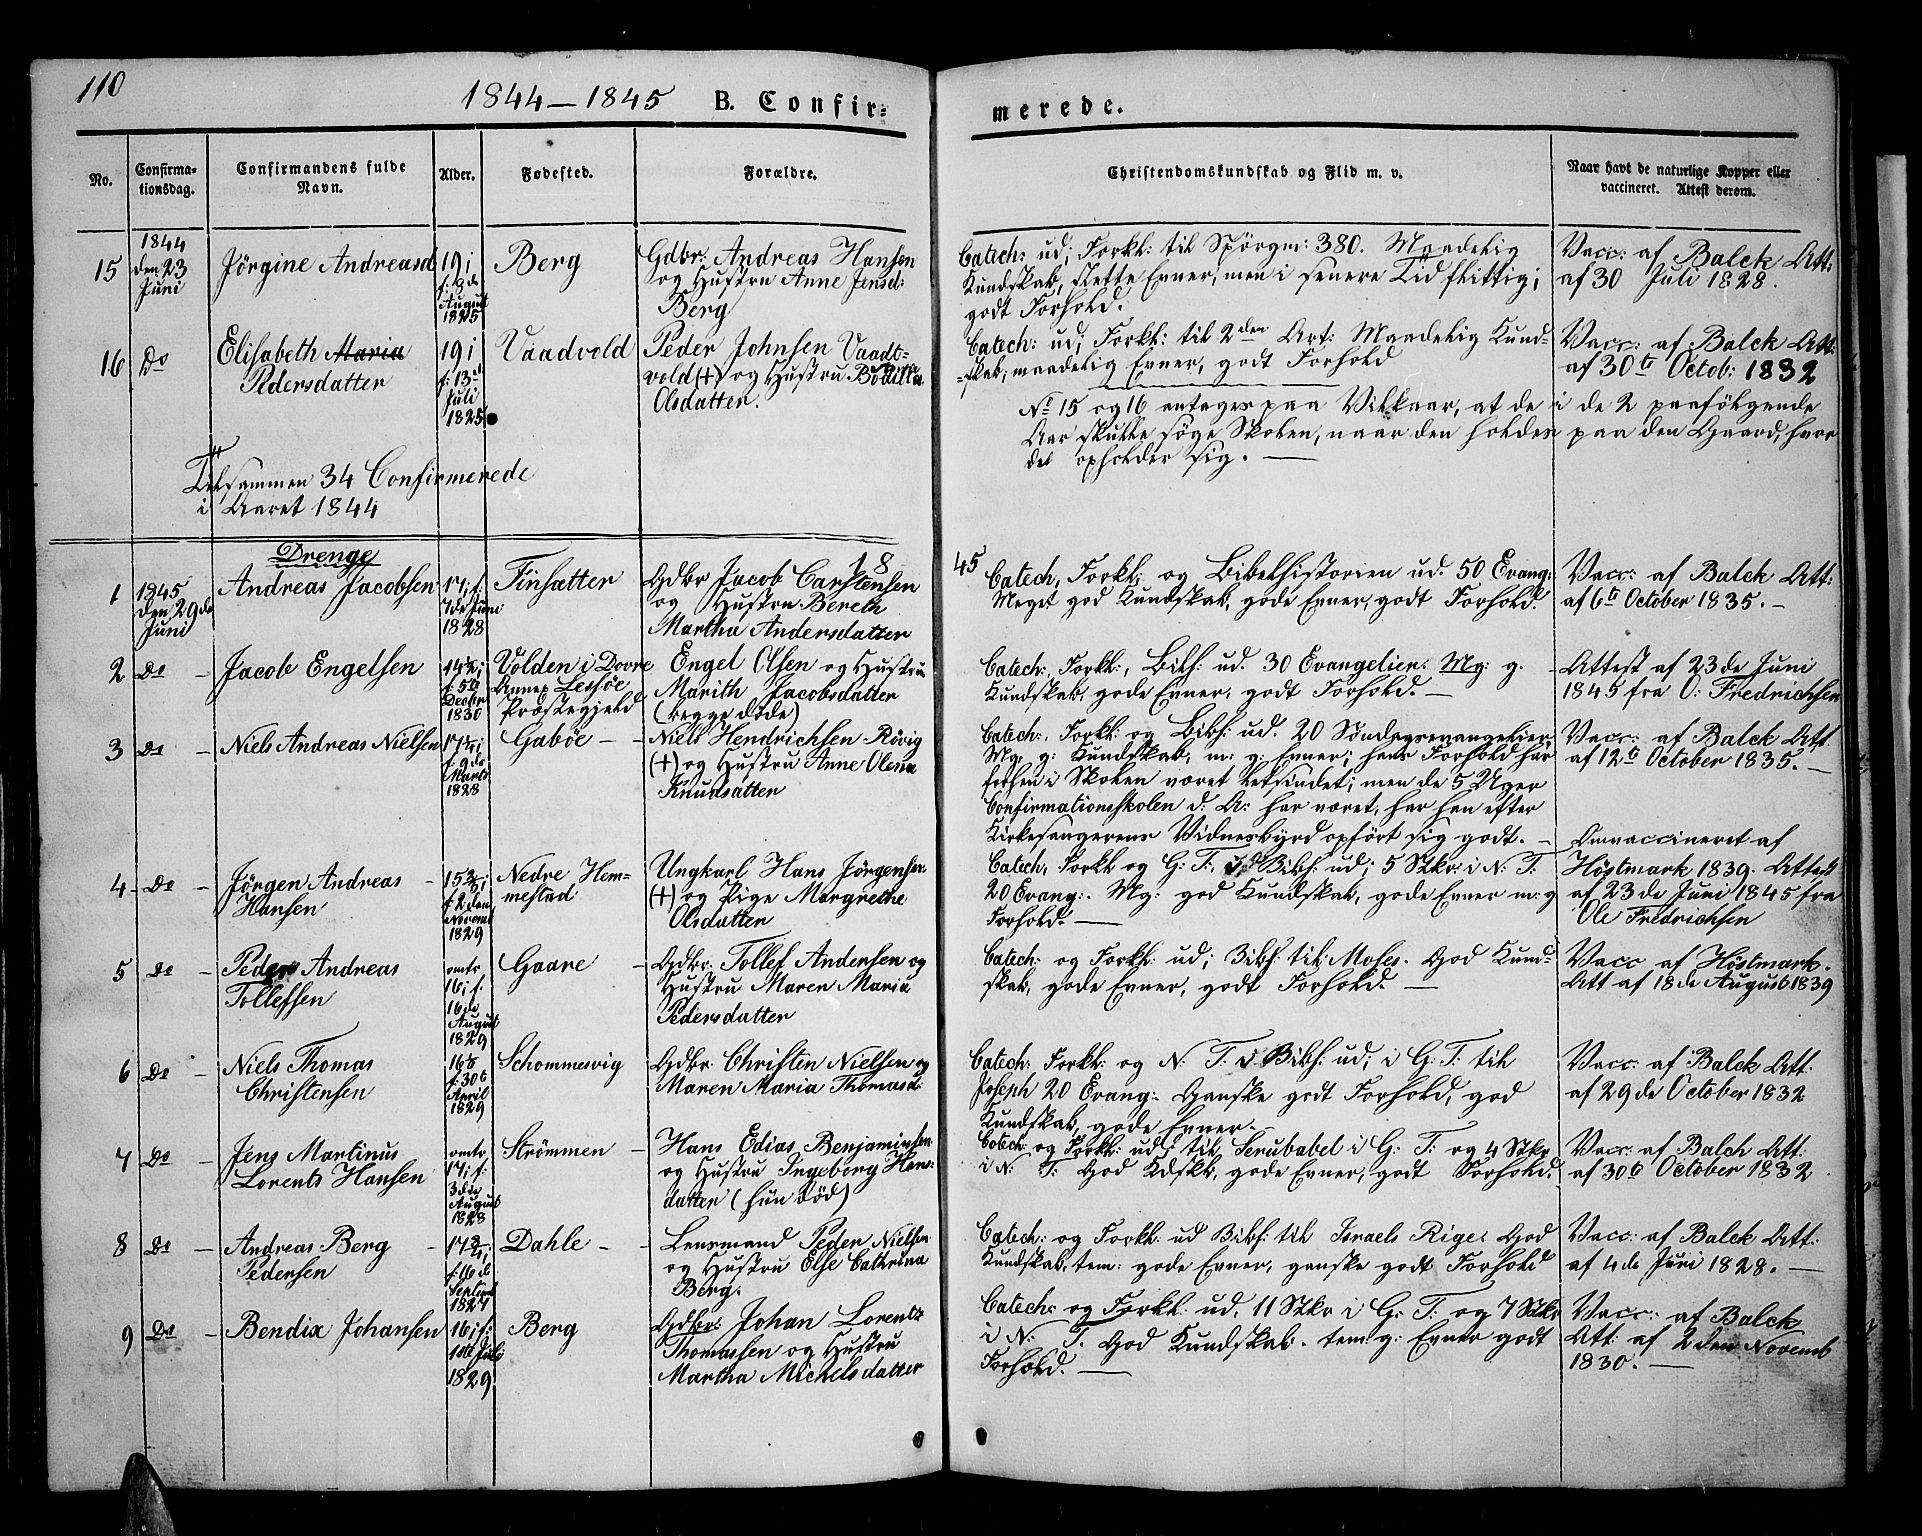 110
1844–1845 B. Confirmerede.
No. Confirmationsdag. Confirmandens fulde Navn. Alder. Fødested. Forældre. Christendomskundskab og Flid m. v. Naar havt de naturlige Kopper eller vaccineret. Attest derom.
15
1844
den 23
Juni
Jörgine Andreasd
19 i
f: 9 de
August
1825
Berg
Gdbr: Andreas Hansen
og Hustru Anne Jensd:
Berg
Catech: ud; Forkl: til Spörgm: 380. Maadelig
Kundskab, slette Evner, men i senere Tid flittig;
godt Forhold.
Vacc: af Balck Att:
af 30 Juli 1828.
16
Do
Elisabeth Maria
Pedersdatter
19 i
f: 13
Juli
1825
Vaadvold
Peder Johnsen Vaadt-
vold (+) og Hustru Bodilla
Olsdatter.
Catech: ud; Forkl: til 2den Art: Maadelig Kund-
skab, maadelig Evner, godt Forhold
Vacc: af Balck Att:
af 30te Octob: 1832
No 15 og 16 antages paa Vilkaar, at de i de 2 paafölgende
Aar skulle söge Skolen, naar den holdes paa den Gaard, hvor
de opholder sig. —
Tilsammen 34 Confirmerede
i Aaret 1844
Drenge
18
45
1
1845
den 29de
Juni
Andreas Jacobsen
17 i f:
7de Juni
1828
Finsætter
Gdbr Jacob Carstensen
og Hustru Bereth
Martha Andersdatter
Catech, Forkl: og Bibelhistorien ud. 50 Evang:
Meget god Kundskab, gode Evner, godt Forhold.
Vacc: af Balck Att:
af 6te October 1835. —
2
Do —
Jacob Engelsen
14½ i
f: 5te
Decbr
1830
Volden i Dovre
Annex Lessöe
Præstegjeld
Engel Olsen og Hustru
Marith Jacobsdatter
(begge döde)
Catech:, Forkl:, Bibh: ud. 30 Evangelier. Mg: g.
Kundskab, gode Evner, godt Forhold. —
Attest af 23de Juni
1845 fra O: Fredrichsen
3
Do —
Niels Andreas Nielsen
17¼ i
f: 9de
Marts
1828
Gaböe —
Niels Hendrichsen Rövig
(+) og Hustru Anne Olena
Knudsatter
Catech:, Forkl: og Bibh: ud. 20 Söndagsevangelier
Mg: g: Kundskab, m: g. Evner; hans Forhold har
forhen i Skolen været letsindet; men de 5 Uger
Confirmationsskolen d: A: har været, har han efter
Kirkesangerens Vidnesbyrd opfört sig godt. —
Vacc: af Balck Att
af 12te October 1835. —
4
Do —
Jörgen Andreas
Hansen
f: 2den
Novemb
1829
Nedre Hem-
mestad
Ungkarl Hans Jörgensen
(+) og Pige Margrethe
Olsdatter
Catech, Forkl: og G: T: i Bibh: ud; 5 Stkr. i N: T:
20 Evang:. Mg: god Kundskab, gode Evner m: g
Forhold. —
Omvaccineret af
Höstmark 1839. Attest
af 23de Juni 1845 fra
Ole Fredrichsen
5
Do —
Peder Andreas
Tollefsen
omtr.
16 i f:
16de
August
1829
Gaare —
Gdbr: Tollef Andersen og
Hustru Maren Maria
Pedersdatter
Catech: og Forkl: ud; Bibh: til Moses. God Kund-
skab, gode Evner, godt Forhold. —
Vacc af Höstmark.
Att af 18de August 1839
6
Do —
Niels Thomas
Christensen
f: 30te
April
1829
Schommesvig
Gdbr: Christen Nielsen og
Maren Maria Thomasd:
Catech: Forkl: og N: T: i Bibh: ud; i G: T: til
Joseph 20 Evang:. Ganske godt Forhold, god
Kundskab, gode Evner.
Vacc: af Balck Att:
af 29de October 1832
7
Do —
Jens Martinus
Lorents Hansen
omtr.
17 i f:
3die
August
1828
Strömmen —
Hans Edias Benjaminsen
og Hustru Ingeborg Hans-
datter (hun död)
Catech: og Forkl: ud; til Serubabel i G: T: og 4 Stkr
i N: T: God Kdskb, gode Evner, godt Forhold.
Vacc: af Balch Att:
af 30te October 1832
8
Do —
Andreas Berg
Pedersen
f: 16de
Septbr
1827
Dahle —
Lensmand Peder Nielsen
og Hustru Else Cathrina
Berg.
Catech: og Forkl: ud Bibh: til Israels Rige. God
Kundskab, tem: gode Evner, ganske godt Forhold
Vacc: af Balck Att:
af 4de Juni 1828. —
9
Do —
Bendix Johansen
16 i f:
1ste Juli
1829
Berg
Gdbr: Johan Lorentz
Thomassen og Hustru
Martha Michelsdatter
Catech: og Forkl: ud. 11 Stkr i G: T: og 7 Stkr
i N: T. God Kundskab. tem: g: Evner godt
Forhold. —
Vacc: af Balck
Att: af 2den Novemb
1830. —